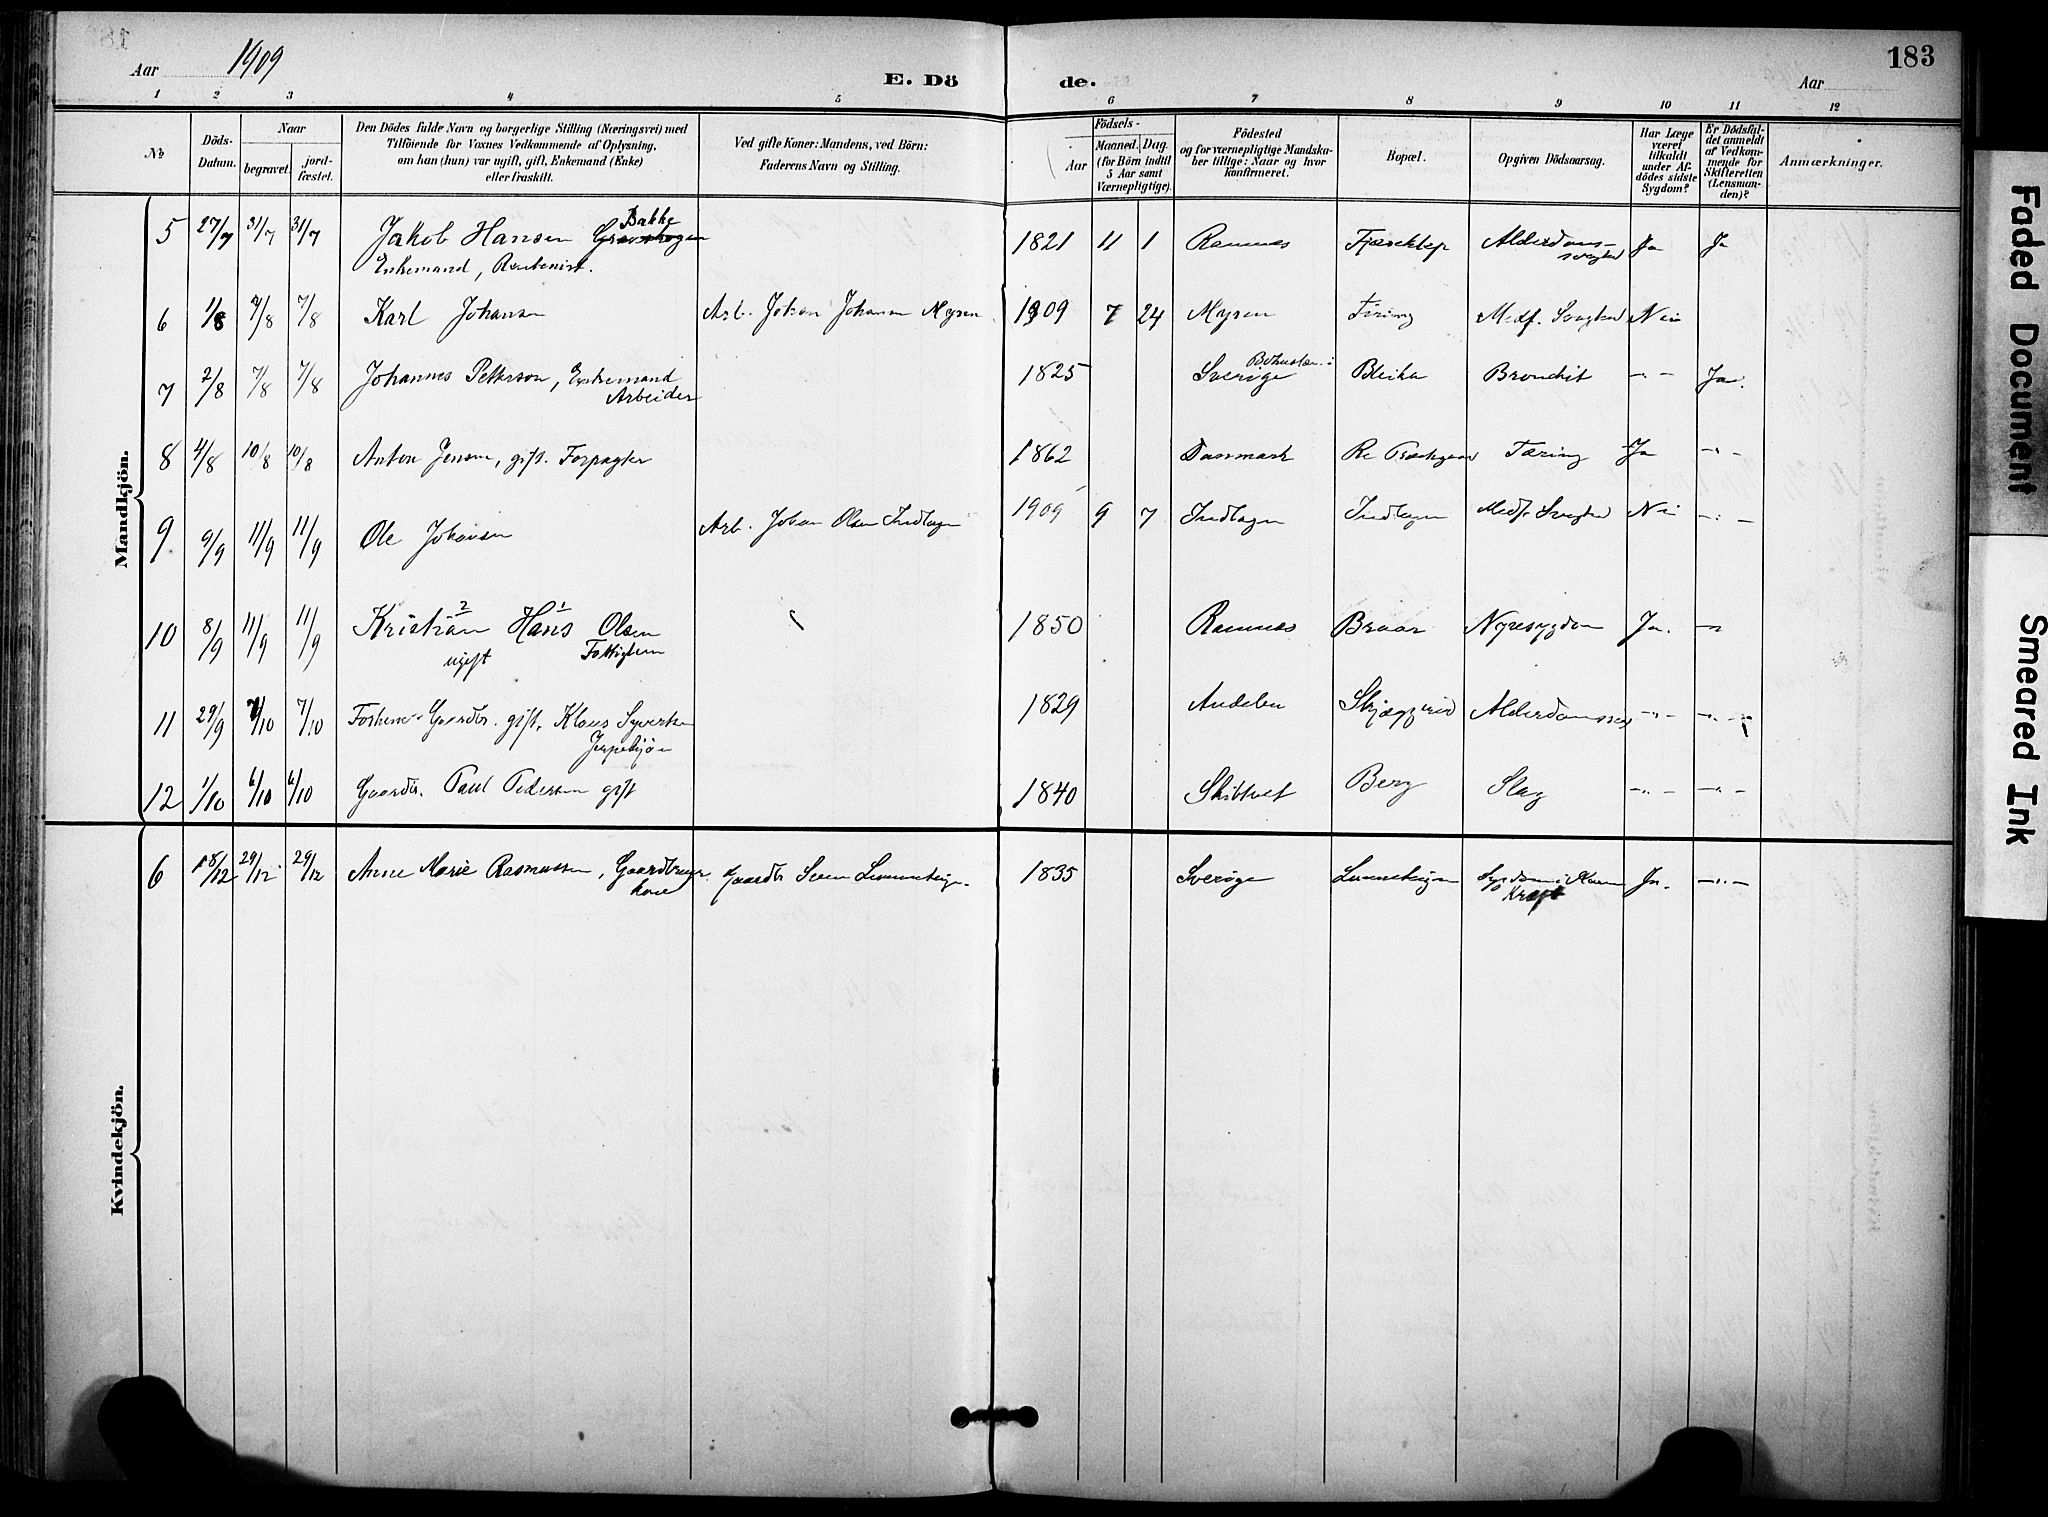 Aar 1909
E. Dö
de.
Aar
183
1 2 3 4 5 6 7 8 9 10 11 12
No
Döds-Datum.
Naar
begravet.
jord-fæstet.
Den Dödes fulde Navn og borgerlige Stilling (Næringsvei) med
Tilföiende for Voxnes Vedkommende af Oplysning,
om han (hun) var ugift, gift, Enkemand (Enke)
eller fraskilt.
Ved gifte Koner: Mandens, ved Börn:
Faderens Navn og Stilling.
Födsels-
Aar
Maaned. Dag.
(for Börn indtil
5 Aar samt
Værnepligtige).
Födested
og for værnepligtige Mandska-
ber tillige: Naar og hvor
konfirmeret.
Bopæl.
Opgiven Dödsaarsag.
Har Læge
været
tilkaldt
under Af-
dödes sidste
Sygdom?
Er Dödsfal-
det anmeldt
af Vedkom-
mende for
Skifteretten
(Lensman-
den)?
Anmærkninger.
Mandkjön.
Bakke
5 27/7 31/7 31/7 Jakob Hansen 1821 11 1 Ramnes Alderdoms- Ja Ja
Enkemand, Rentenist. svaghed
6 1/8 7/8 7/8 Karl Johansen Arb. Johan Johansen Myren 1909 7 24 Myren Medf. Svaghed Nei
Bohuslæn
7 2/8 7/8 7/8 Johannes Petterson, Enkemand 1825 Sverige Bleika Bronchit -"- Ja.
Arbeider
8 4/8 10/8 10/8 Anton Jensen, gift. Forpagter 1862 Danmark Re Præstgaard Tæring Ja -"-
9 9/9 11/9 11/9 Ole Johansen Arb. Johan Olsen Indlagn 1909 9 7 Indlagn Indlagn Medf. Svaghed Nei -"-
10 8/9 11/9 11/9 Kristian 2 Hans 1 Olsen 1850 Ramnes Braar Nyresygdom Ja. -"-
ugift Fattiglem
11 29/9 7/10 7/10 Gaardbr. gift, Klaus Syvertsen 1829 Andebu Alderdomssv -"- -"-
12 1/10 6/10 6/10 Gaardbr. Paul Pedersen gift 1840 Skibtvet Berg Slag -"- -"-
Kvindekjön.
6 18/12 29/12 29/12 Anne Marie Rasmussen, Gaardbruger Gaardbr. Sören 1835 Sverige Ja. -"-
kone Kræft
Faded Document
Smeared Ink